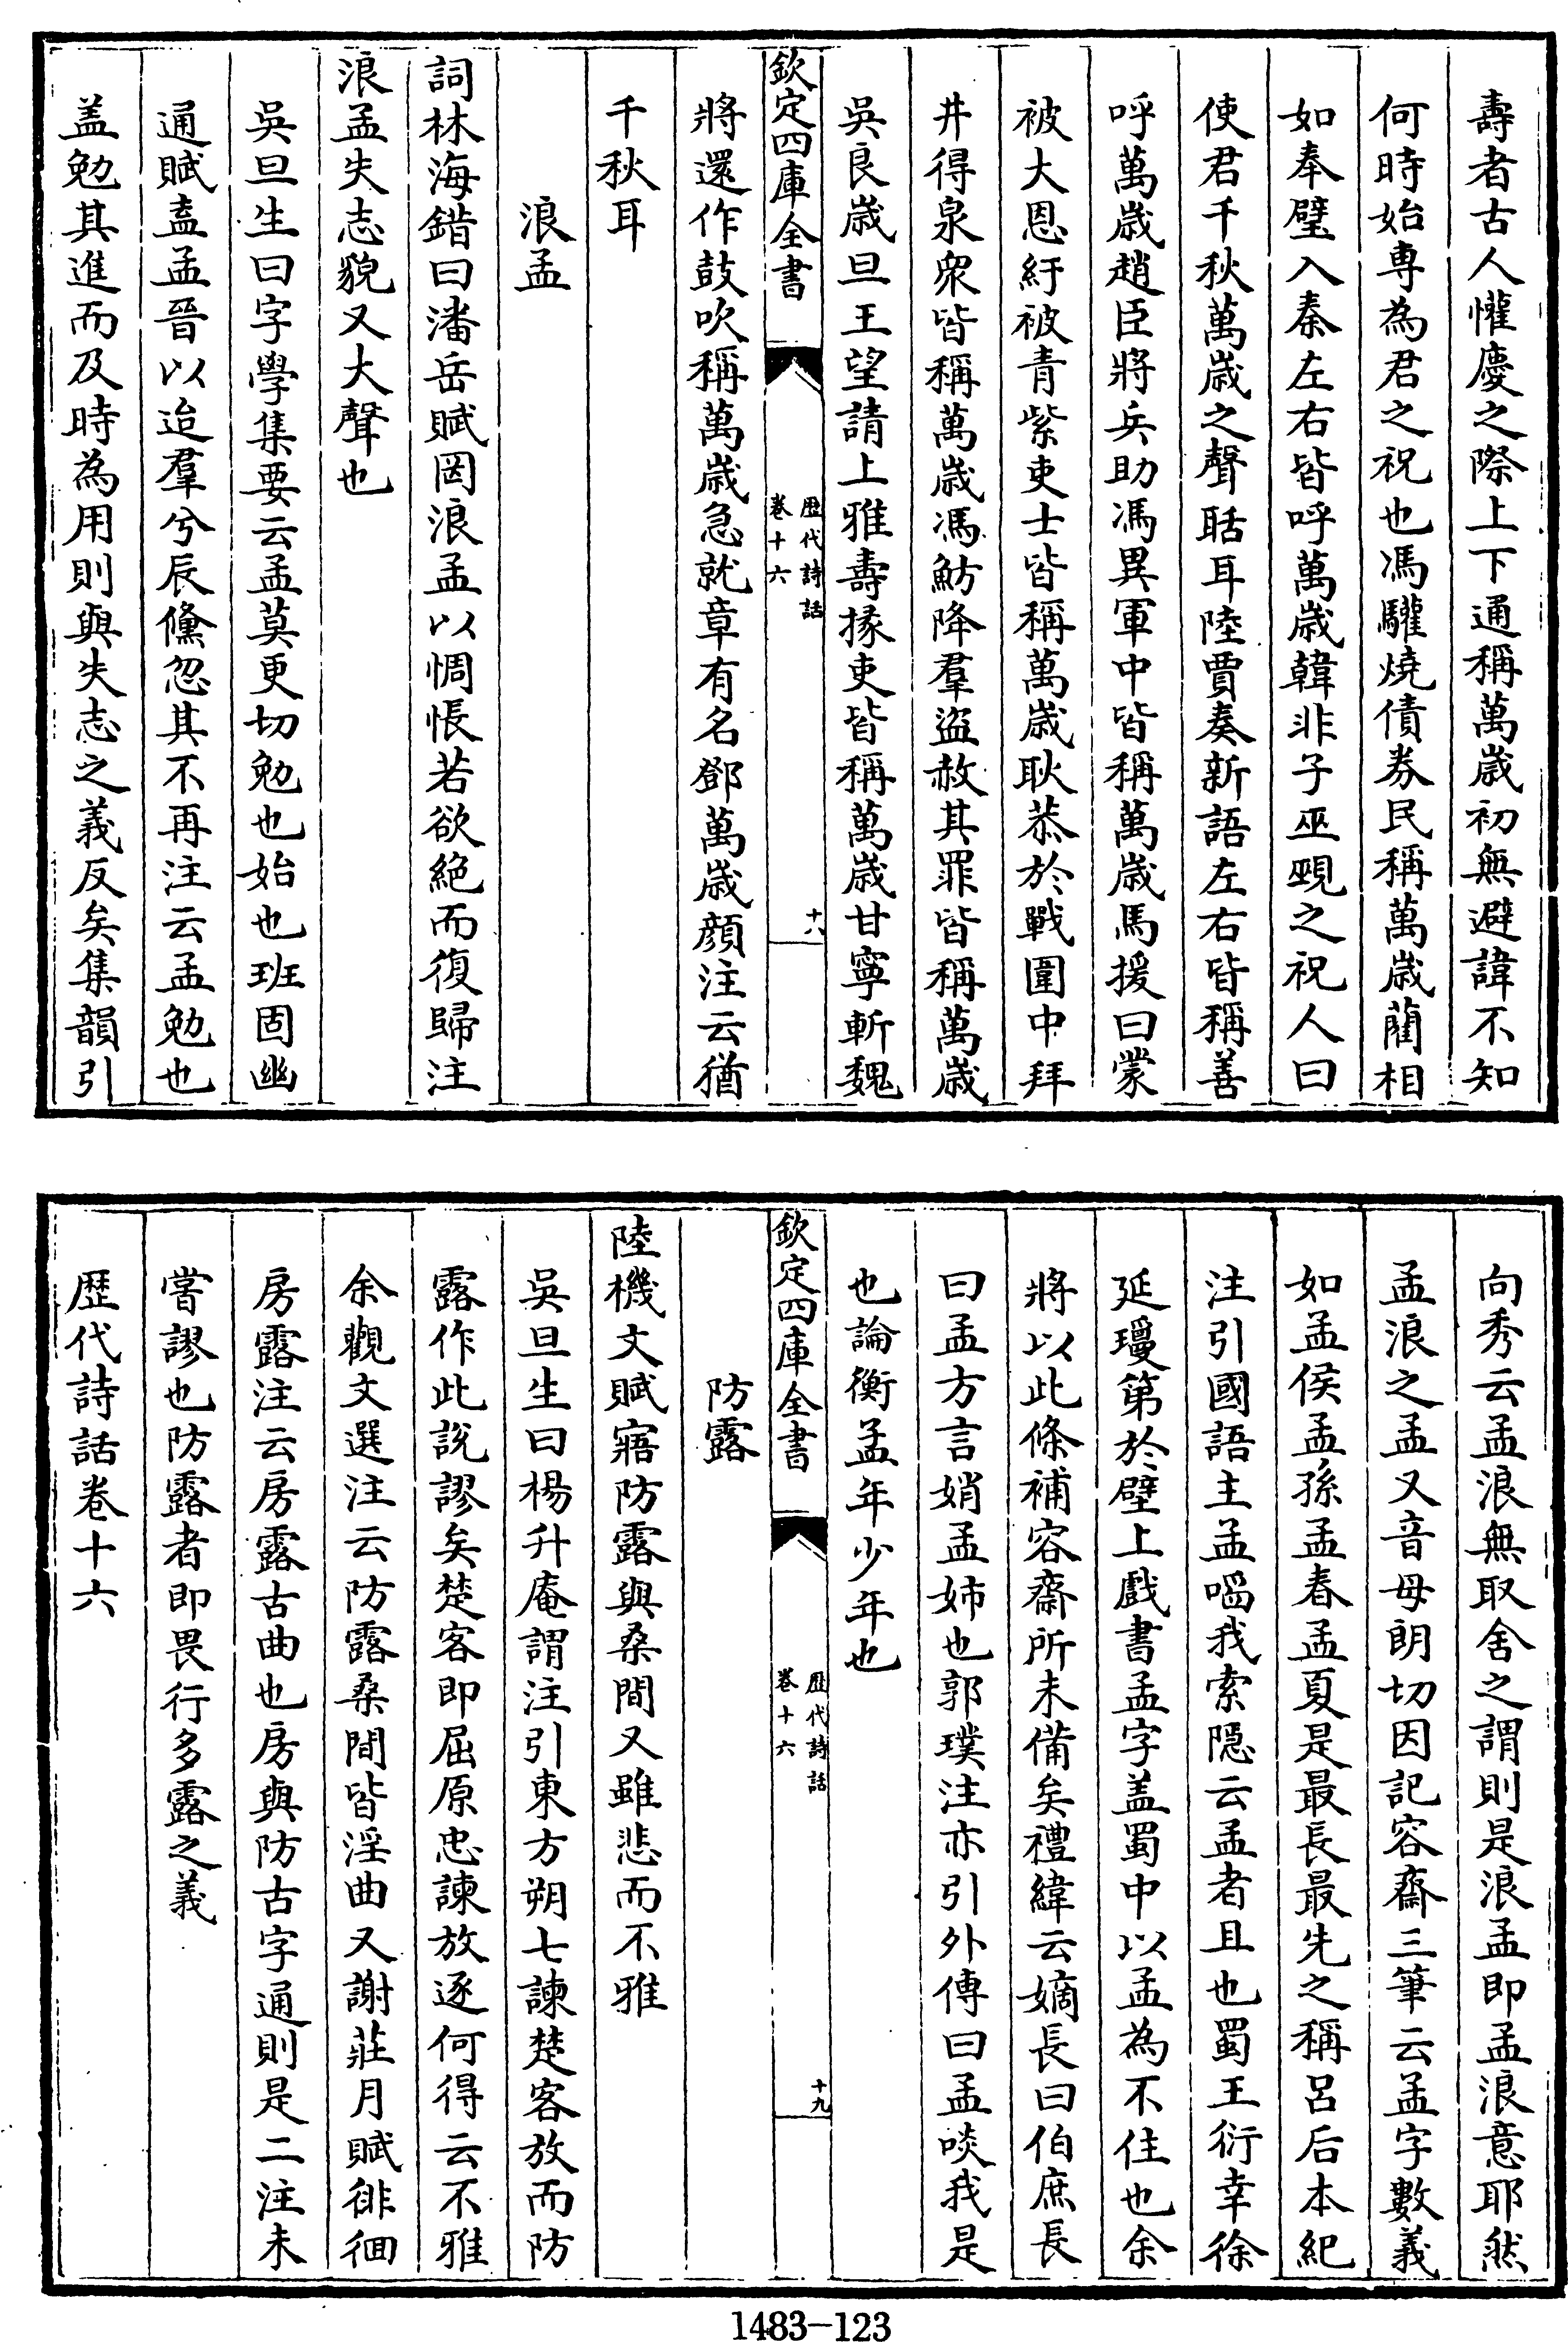 壽者古人懽慶之際上下通稱萬歲初無避諱不知
何時始專為君之祝也馮驩燒債券民稱萬歲藺相
如奉璧入秦左右皆呼萬歲韓非子巫覡之祝人曰
使君千秋萬歲之聲聒耳陸賈奏新語左右皆稱善
呼萬歲趙臣將兵助馮異軍中皆稱萬歲馬援曰蒙
被大恩紆被青紫吏士皆稱萬歲耿恭於戰圍中拜
井得泉衆皆稱萬歲馮魴降羣盜赦其罪皆稱萬歲
吳良歲旦王望請上雅壽掾吏皆稱萬歲甘寧斬魏
欽定四庫全書
歷代詩話
卷十六
十八
將還作鼓吹稱萬歲急就章有名鄧萬歲顔注云猶
千秋耳
浪孟
詞林海錯曰潘岳賦罔浪孟以惆悵若欲絶而復歸注
浪孟失志貌又大聲也
吳旦生曰字學集要云孟莫更切勉也始也班固幽
通賦盍孟晉以迨羣兮辰儵忽其不再注云孟勉也
盖勉其進而及時為用則與失志之義反矣集韻引
向秀云孟浪無取舍之謂則是浪孟即孟浪意耶然
孟浪之孟又音母朗切因記容齋三筆云孟字數義
如孟侯孟孫孟春孟夏是最長最先之稱呂后本紀
注引國語主孟啗我索隱云孟者且也蜀王衍幸徐
延瓊第於壁上戲書孟字盖蜀中以孟為不佳也余
將以此條補容齋所未備矣禮緯云嫡長曰伯庶長
曰孟方言娋孟姉也郭璞注亦引外傳曰孟啖我是
也論衡孟年少年也
欽定四庫全書
歷代詩話
卷十六
十九
防露
陸機文賦寤防露與桑間又雖悲而不雅
吳旦生曰楊升庵謂注引東方朔七諫楚客放而防
露作此說謬矣楚客即屈原忠諫放逐何得云不雅
余觀文選注云防露桑間皆淫曲又謝莊月賦徘徊
房露注云房露古曲也房與防古字通則是二注未
嘗謬也防露者即畏行多露之義
歷代詩話卷十六
1483-123